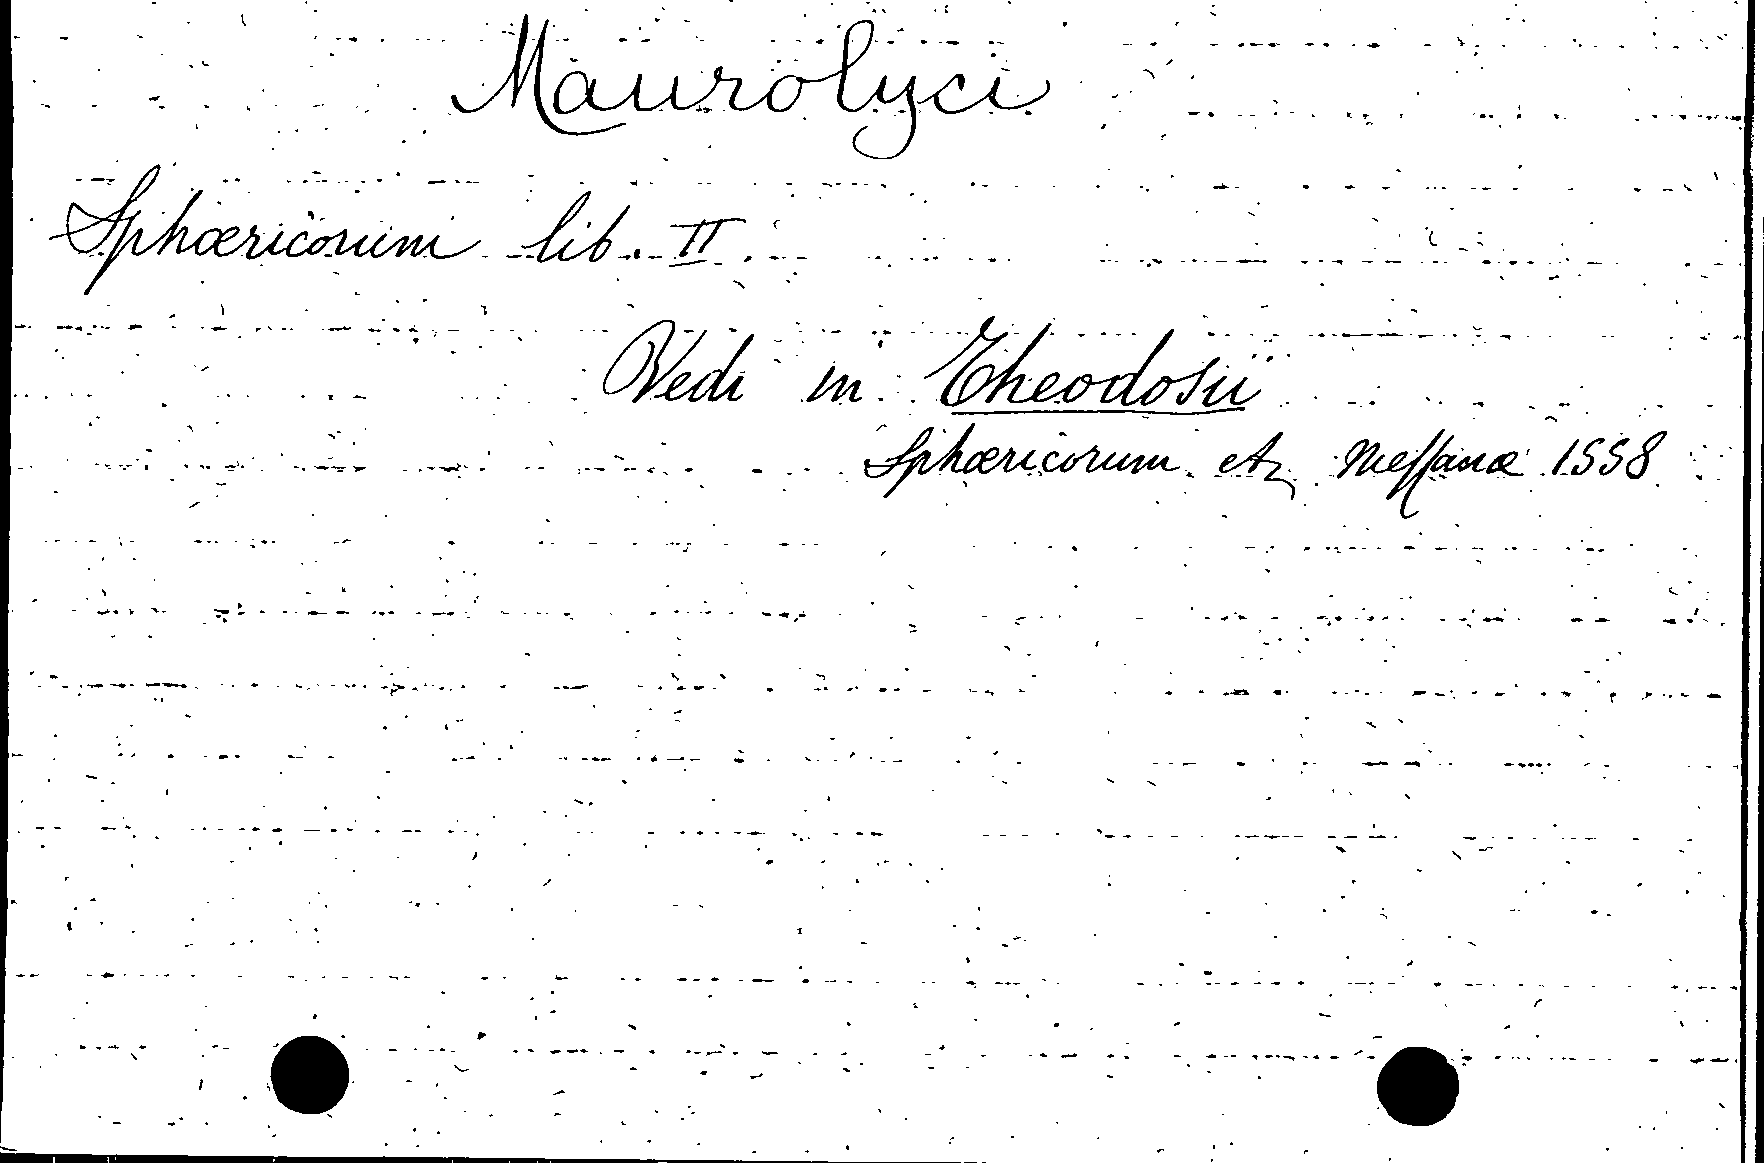 Maurolyci
Sphæricorum lib. II
Vedi in Theodosii
Sphæricorum etc Messanæ 1558